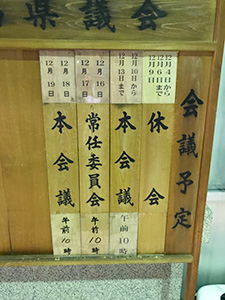 県議会
会議予定
12月4日から
12月9日まで
休会
12月10日から
12月13日まで
本会議
午前10時
12月16日
12月17日
常任委員会
午前10時
12月18日
12月19日
本会議
午前10時